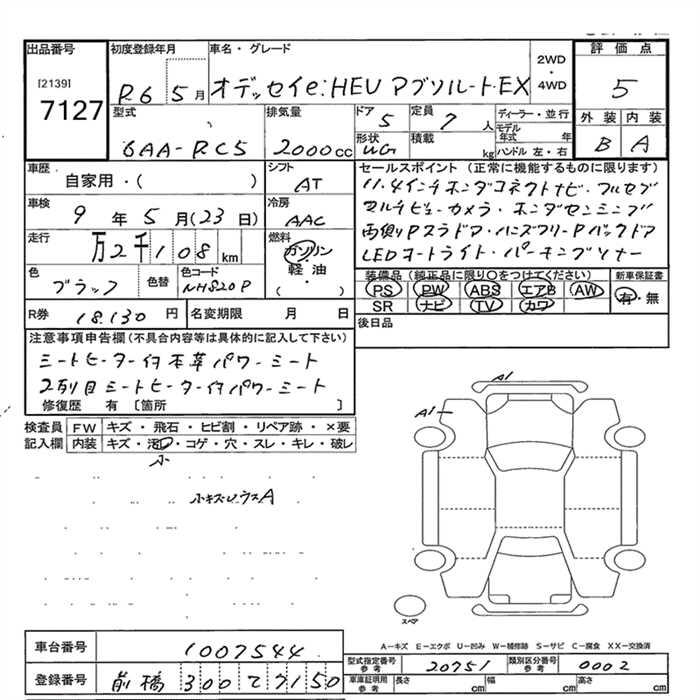 出品番号
[2139]
7127
初度登録年月
R6 5月
車名・グレード
オデッセイe:HEV アブソルートEX
2WD
・
4WD
評価点
5
外装 内装
B A
型式
6AA-RC5
排気量
2000cc
ドア
5
形状
WG
定員
7人
積載
kg
ディーラー・並行
モデル年式 年
ハンドル 左・右
車歴
自家用・( )
シフト
AT
車検
9年5月(23日)
冷房
AAC
走行
万2千108km
燃料
ガソリン
・
軽油
( )
色
ブラック
色替
色コード
NH820P
R券
18,130円
名変期限 月 日
セールスポイント (正常に機能するものに限ります)
11.4インチホンダコネクトナビ・フルセグ
マルチビューカメラ・ホンダセンシング
両側Pスラドア・ハンズフリーPバックドア
LEDオートライト・パーキングソナー
装備品(純正品に限り○をつけてください)
PS PW ABS エアB AW
SR ナビ TV カワ
新車保証書
有・無
後日品
注意事項申告欄(不具合内容等は具体的に記入して下さい)
シートヒーター付本革パワーシート
2列目シートヒーター付パワーシート
修復歴 有 〔箇所 〕
検査員記入欄
FW キズ・飛石・ヒビ割・リペア跡・×要
内装 キズ・汚・コゲ・穴・スレ・キレ・破レ
小
小キズUウスA
A1
A1
スペア
A-キズ E-エクボ U-凹み W-補修跡 S-サビ C-腐食 XX-交換済
車台番号
1007544
登録番号
前橋 300 て 7150
型式指定番号
参考
20751
類別区分番号
参考
0002
車庫証明用
参考
長さ cm
幅 cm
高さ cm